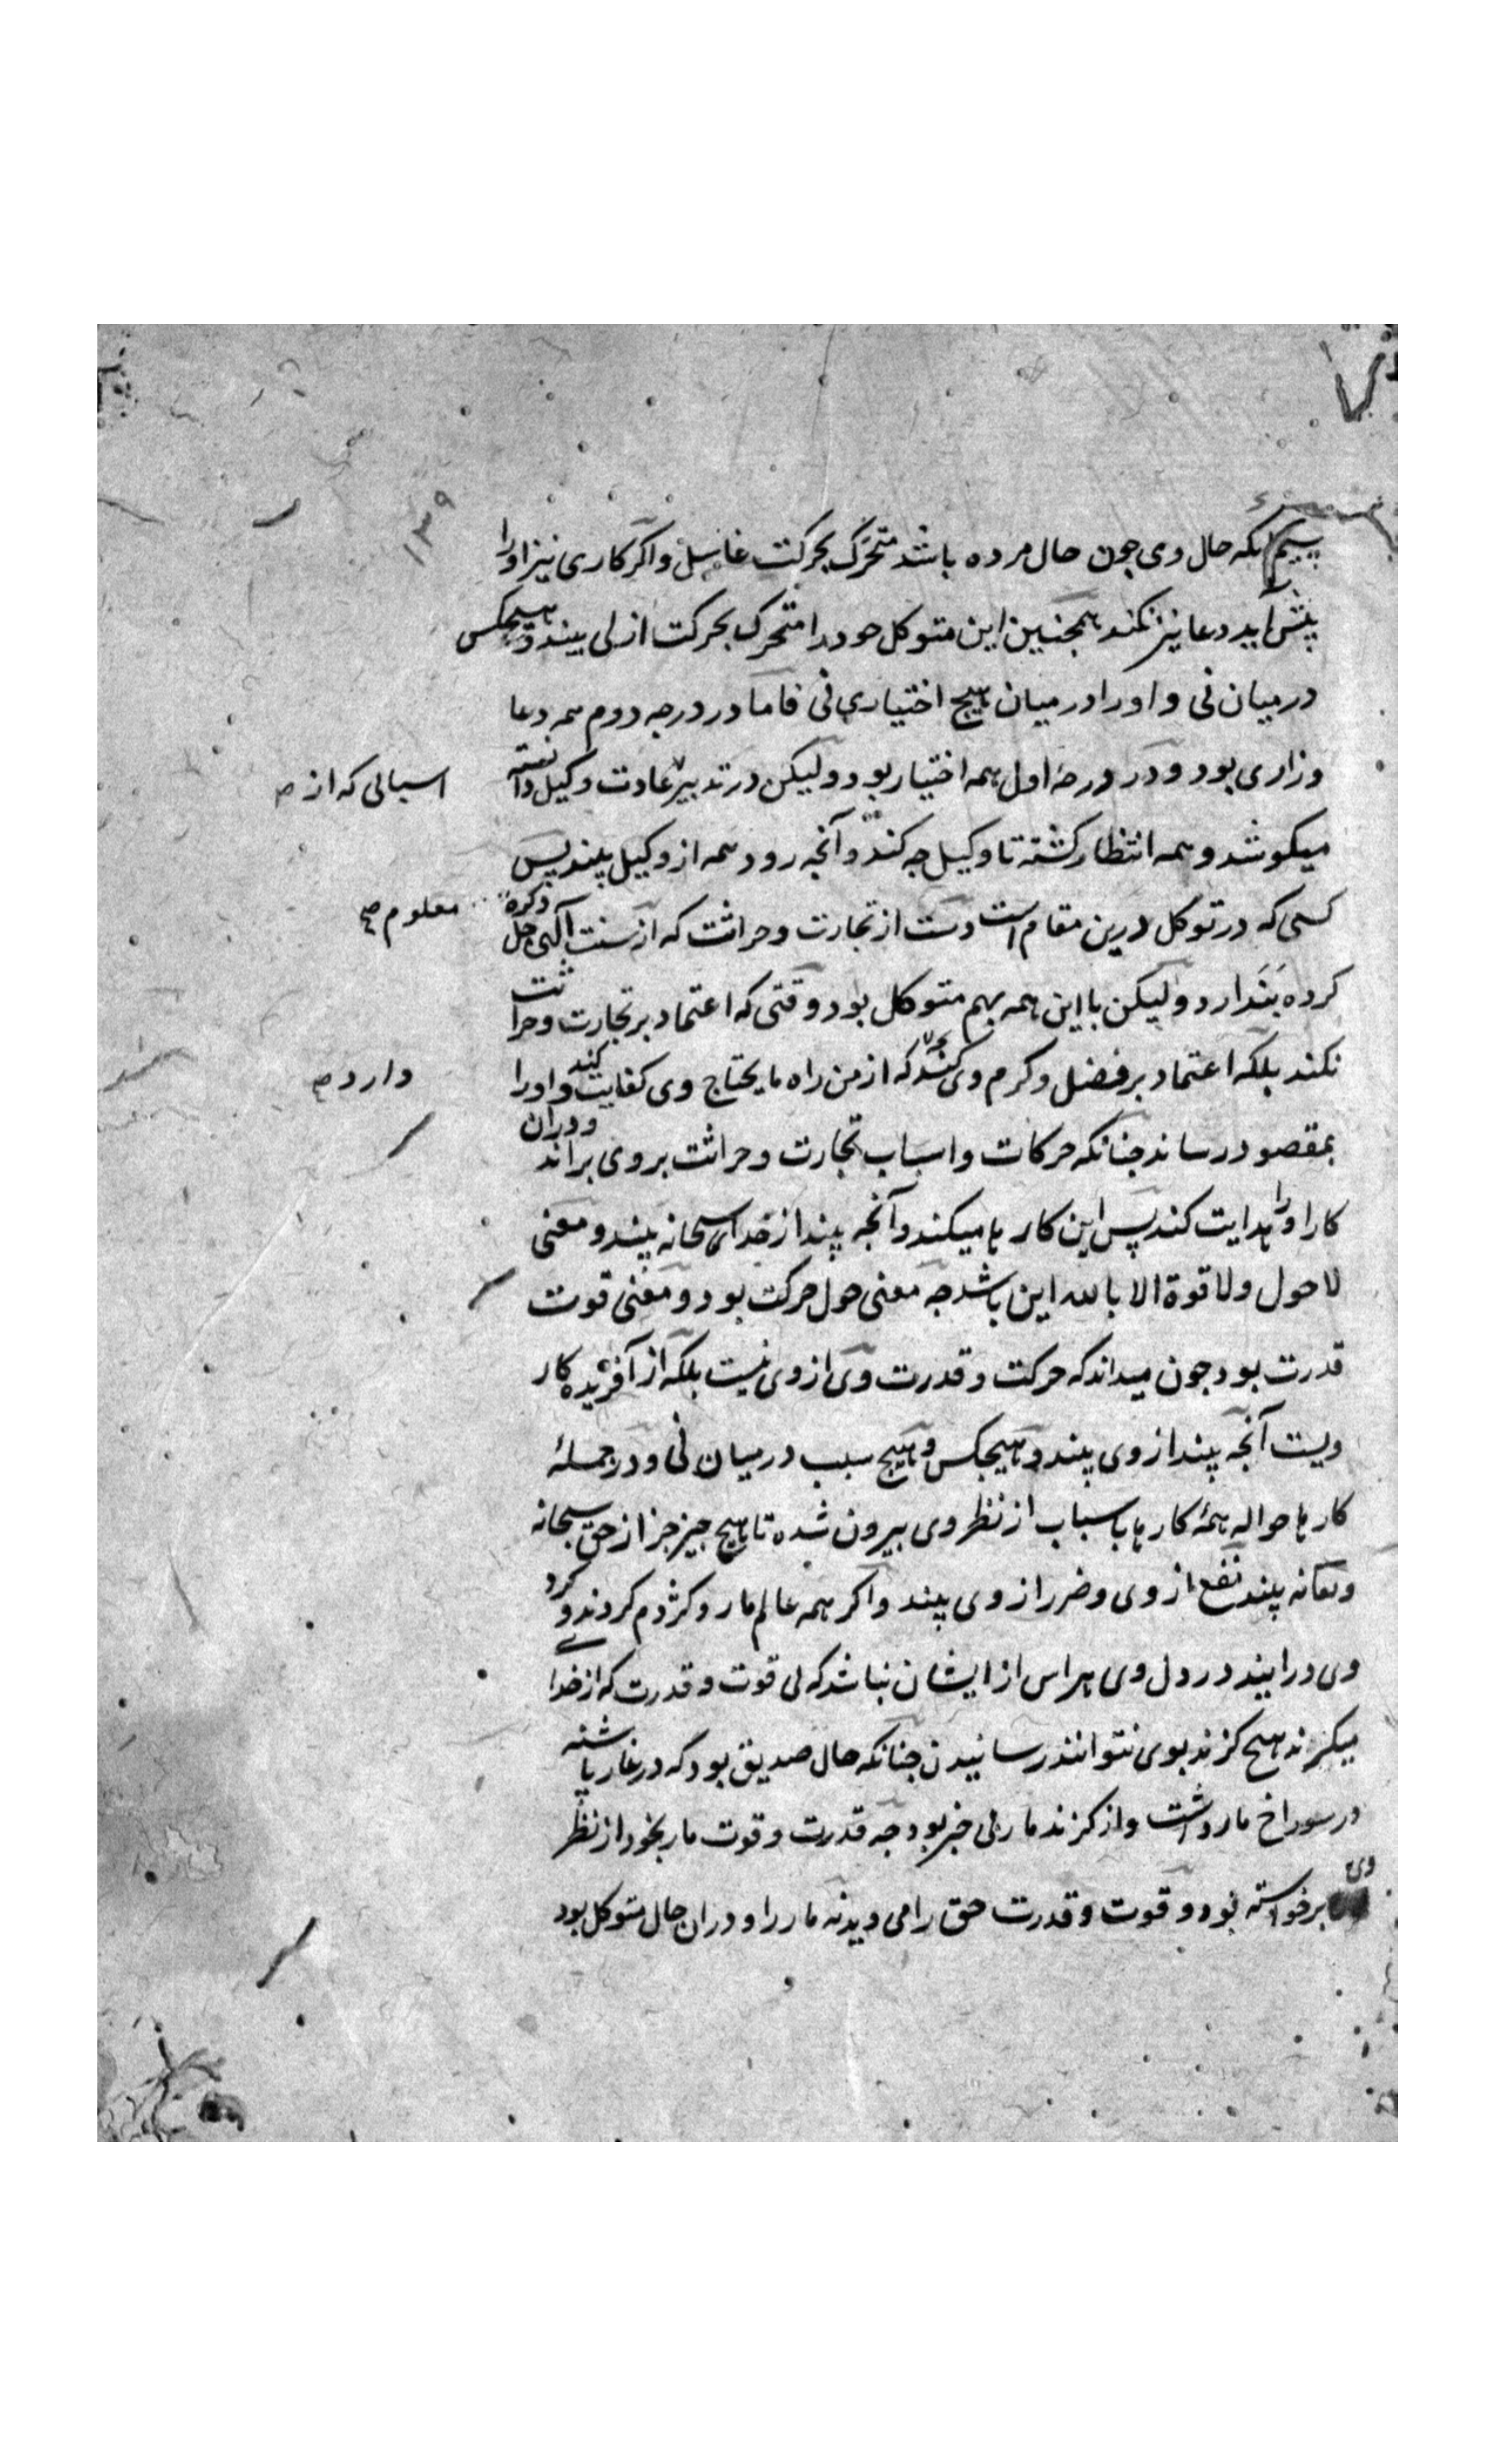 ۱۳۹
سیم آنکه حال وی چون حال مرده باشد متحرک بحرکت غاسل و اگر کاری نیز او را
پیش آید دعا نیز نکند همچنین این متوکل خود را متحرک بحرکت ازلی بیند و هیچکس
در میان نی و او را در میان هیچ اختیاری نی فاما در درجه دوم همه دعا
و زاری بود و در درجهٔ اول همه اختیار بود ولیکن در تدبیر عادت وکیل دانسته
اسبابی که از
میکوشد و همه انتظار کشته تا وکیل چه کند و آنچه رود همه از وکیل بیند پس
کسی که در توکل درین مقام است دست از تجارت و حراثت که از سنت الهی جل ذکره
معلوم صح
کرده بندارد ولیکن با این همه بهم متوکل بود وقتی که اعتماد بر تجارت و حراثت
نکند بلکه اعتماد بر فضل و کرم وی کند که از من راه ما یحتاج وی کفایت کند و او را
دارد
بمقصود رساند چنانکه حرکات و اسباب تجارت و حراثت بر وی براند و در آن
کار او را هدایت کند پس این کارها میکند و آنچه بیند از خدای سبحانه بیند و معنی
لا حول ولا قوة الا بالله این باشد چه معنی حول حرکت بود و معنی قوت
قدرت بود چون میداند که حرکت و قدرت وی از وی نیست بلکه از آفریده کار
ویست آنچه بیند از وی بیند و هیچکس و هیچ سبب در میان نی و در جملهٔ
کارها حواله همهٔ کارها باسباب از نظر وی بیرون شده تا هیچ چیز جز از حق سبحانه
و تعالی نه بیند نفع از وی و ضرر از وی بیند و اگر همه عالم مار و کژدم کردند و کرد
وی درایند در دل وی هراس از ایشان نباشد که بی قوت و قدرت که از خدای
میکیرند هیچ کزند بوی نتوانند رسانیدن چنانکه حال صدیق بود که در غار پاشنه
در سوراخ مار داشت و از کزند مار بی خبر بود چه قدرت و قوت مار بخود از نظر
وی برخواسته بود و قوت و قدرت حق را می دید نه مار را و در ان حال متوکل بود